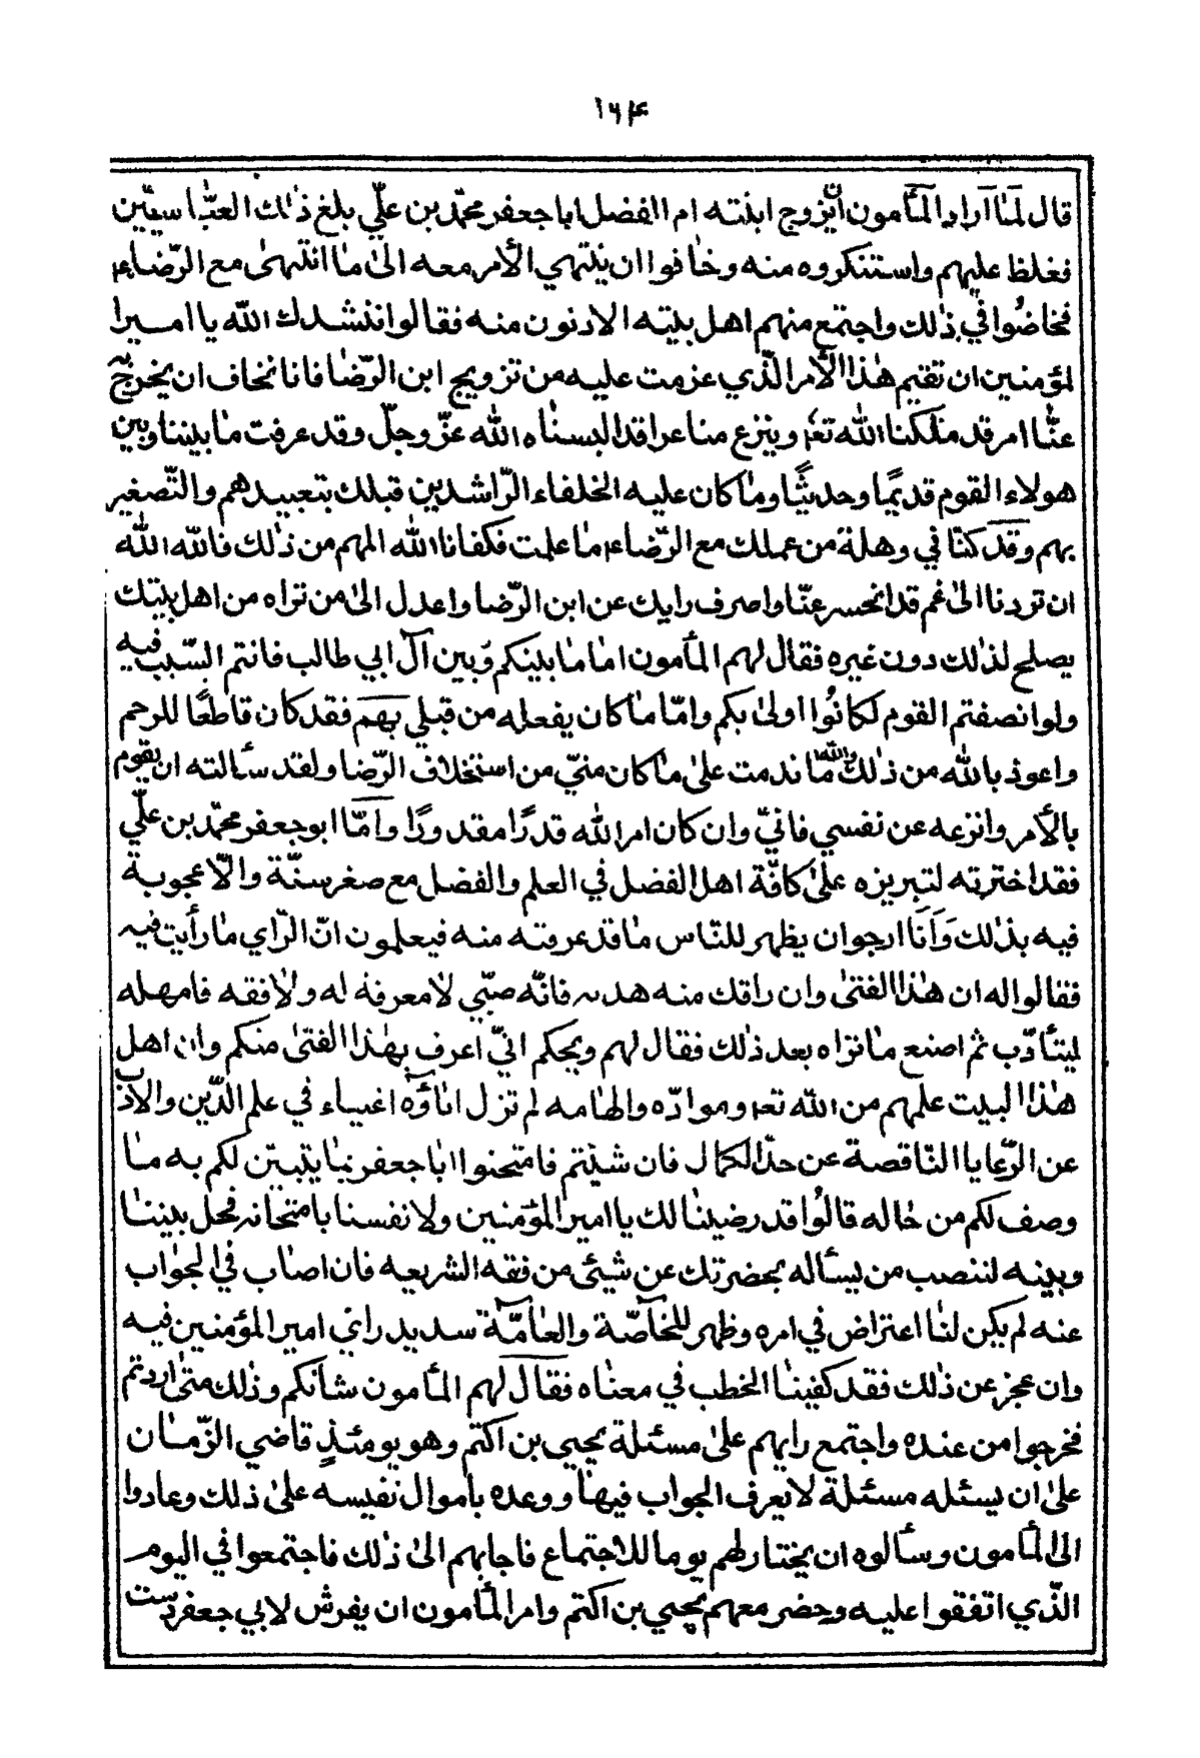 ۱۶۴
قال لمّا آراد المأمون أن يزوج ابنته ام الفضل ابا جعفر محمّد بن عليّ بلغ ذٰلك العبّاسيّين
فغلظ عليهم واستنكروه منه وخافوا ان ينتهي الأمر معه الىٰ ما انتهىٰ مع الرّضاء
فخاضُوا في ذٰلك واجتمع منهم اهل بيته الادنون منه فقالوا ننشدك الله يا اميرا
لمؤمنين ان تقيم هٰذا الأمر الّذي عزمت عليه من تزويج ابن الرّضا فانا نخاف ان يخرج
عنّا امر قد ملّكنا الله تعٰ وينزع منا عزا قد البسناه الله عزّ وجلّ وقد عرفت ما بيننا وبين
هولاء القوم قديمًا وحديثًا وما كان عليه الخلفاء الرّاشدين قبلك بتعبيدهم والتّصغير
بهم وقد كنّا في وهلة من عملك مع الرّضاء ما علمت فكفانا الله المهم من ذٰلك فالله الله
ان تردنا الىٰ غم قد انحسر عنّا واصرف رايك عن ابن الرّضا واعدل الىٰ من تراه من اهل بيتك
يصلح لذٰلك دون غيره فقال لهم المأمون اما ما بينكم وبين آل ابي طالب فانتم السّبب فيه
ولو انصفتم القوم لكانُوا اولىٰ بكم وامّا ما كان يفعله من قبلي بهم فقد كان قاطعًا للرحم
واعوذ بالله من ذٰلك والله ما ندمت علىٰ ما كان منّي من استخلاف الرّضا ولقد سألته ان يقوم
بالأمر وانزعه عن نفسي فانيّ وان كان امر الله قدرًا مقدورًا وآمّا ابو جعفر محمّد بن عليّ
فقد اخترته لتبريزه علىٰ كافّة اهل الفضل في العلم والفضل مع صغر سنّة والاّعجوبة
فيه بذٰلك وَاَنَا ارجوان يظهر للنّاس ما قد عرفته منه فيعلمون انّ الرّاي ما رأيت فيه
فقالوا له ان هٰذا الفتىٰ وان راقك منه هديه فانّه صبّي لا معرفة له ولا فقه فامهله
ليتأدّب ثم اصنع ما تراه بعد ذٰلك فقال لهم ويحكم انيّ اعرف بهٰذا الفتىٰ منكم وان اهل
هٰذا البيت علمهم من الله تعٰ وموادّه والهامه لم تزل اباؤه اغنياء في علم الدّين والأدب
عن الرّعايا النّاقصة عن حدّ الكمال فان شئتم فامتحنوا ابا جعفر بما يتبيّن لكم به ما
وصف لكم من حاله قالُوا قد رضينا لك يا امير المؤمنين ولانفسنا بامتحانه فخل بيننا
وبينه لننصب من يسأله بحضرتك عن شيئ من فقه الشريعه فان اصاب في الجواب
عنه لم يكن لنا اعتراض في امره وظهر للخاصّة والعامّة سديد راي امير المؤمنين فيه
وان عجز عن ذٰلك فقد كفينا الخطب في معناه فقال لهم المأمون شانكم وذٰلك متىٰ اردتم
فخرجوا من عنده واجتمع رايهم علىٰ مسئلة يحيي بن اكثم وهو يومئذٍ قاضي الزّمان
علىٰ ان يسئله مسئلة لا يعرف الجواب فيها ووعده باموال نفيسه علىٰ ذٰلك وعادوا
الى المأمون وسألوه ان يختار لهم يوما للاجتماع فاجابهم الىٰ ذٰلك فاجتمعوا في اليوم
الّذي اتفقوا عليه وحضر معهم يحيي بن اكثم وامر المأمون ان يفرش لابي جعفر دست